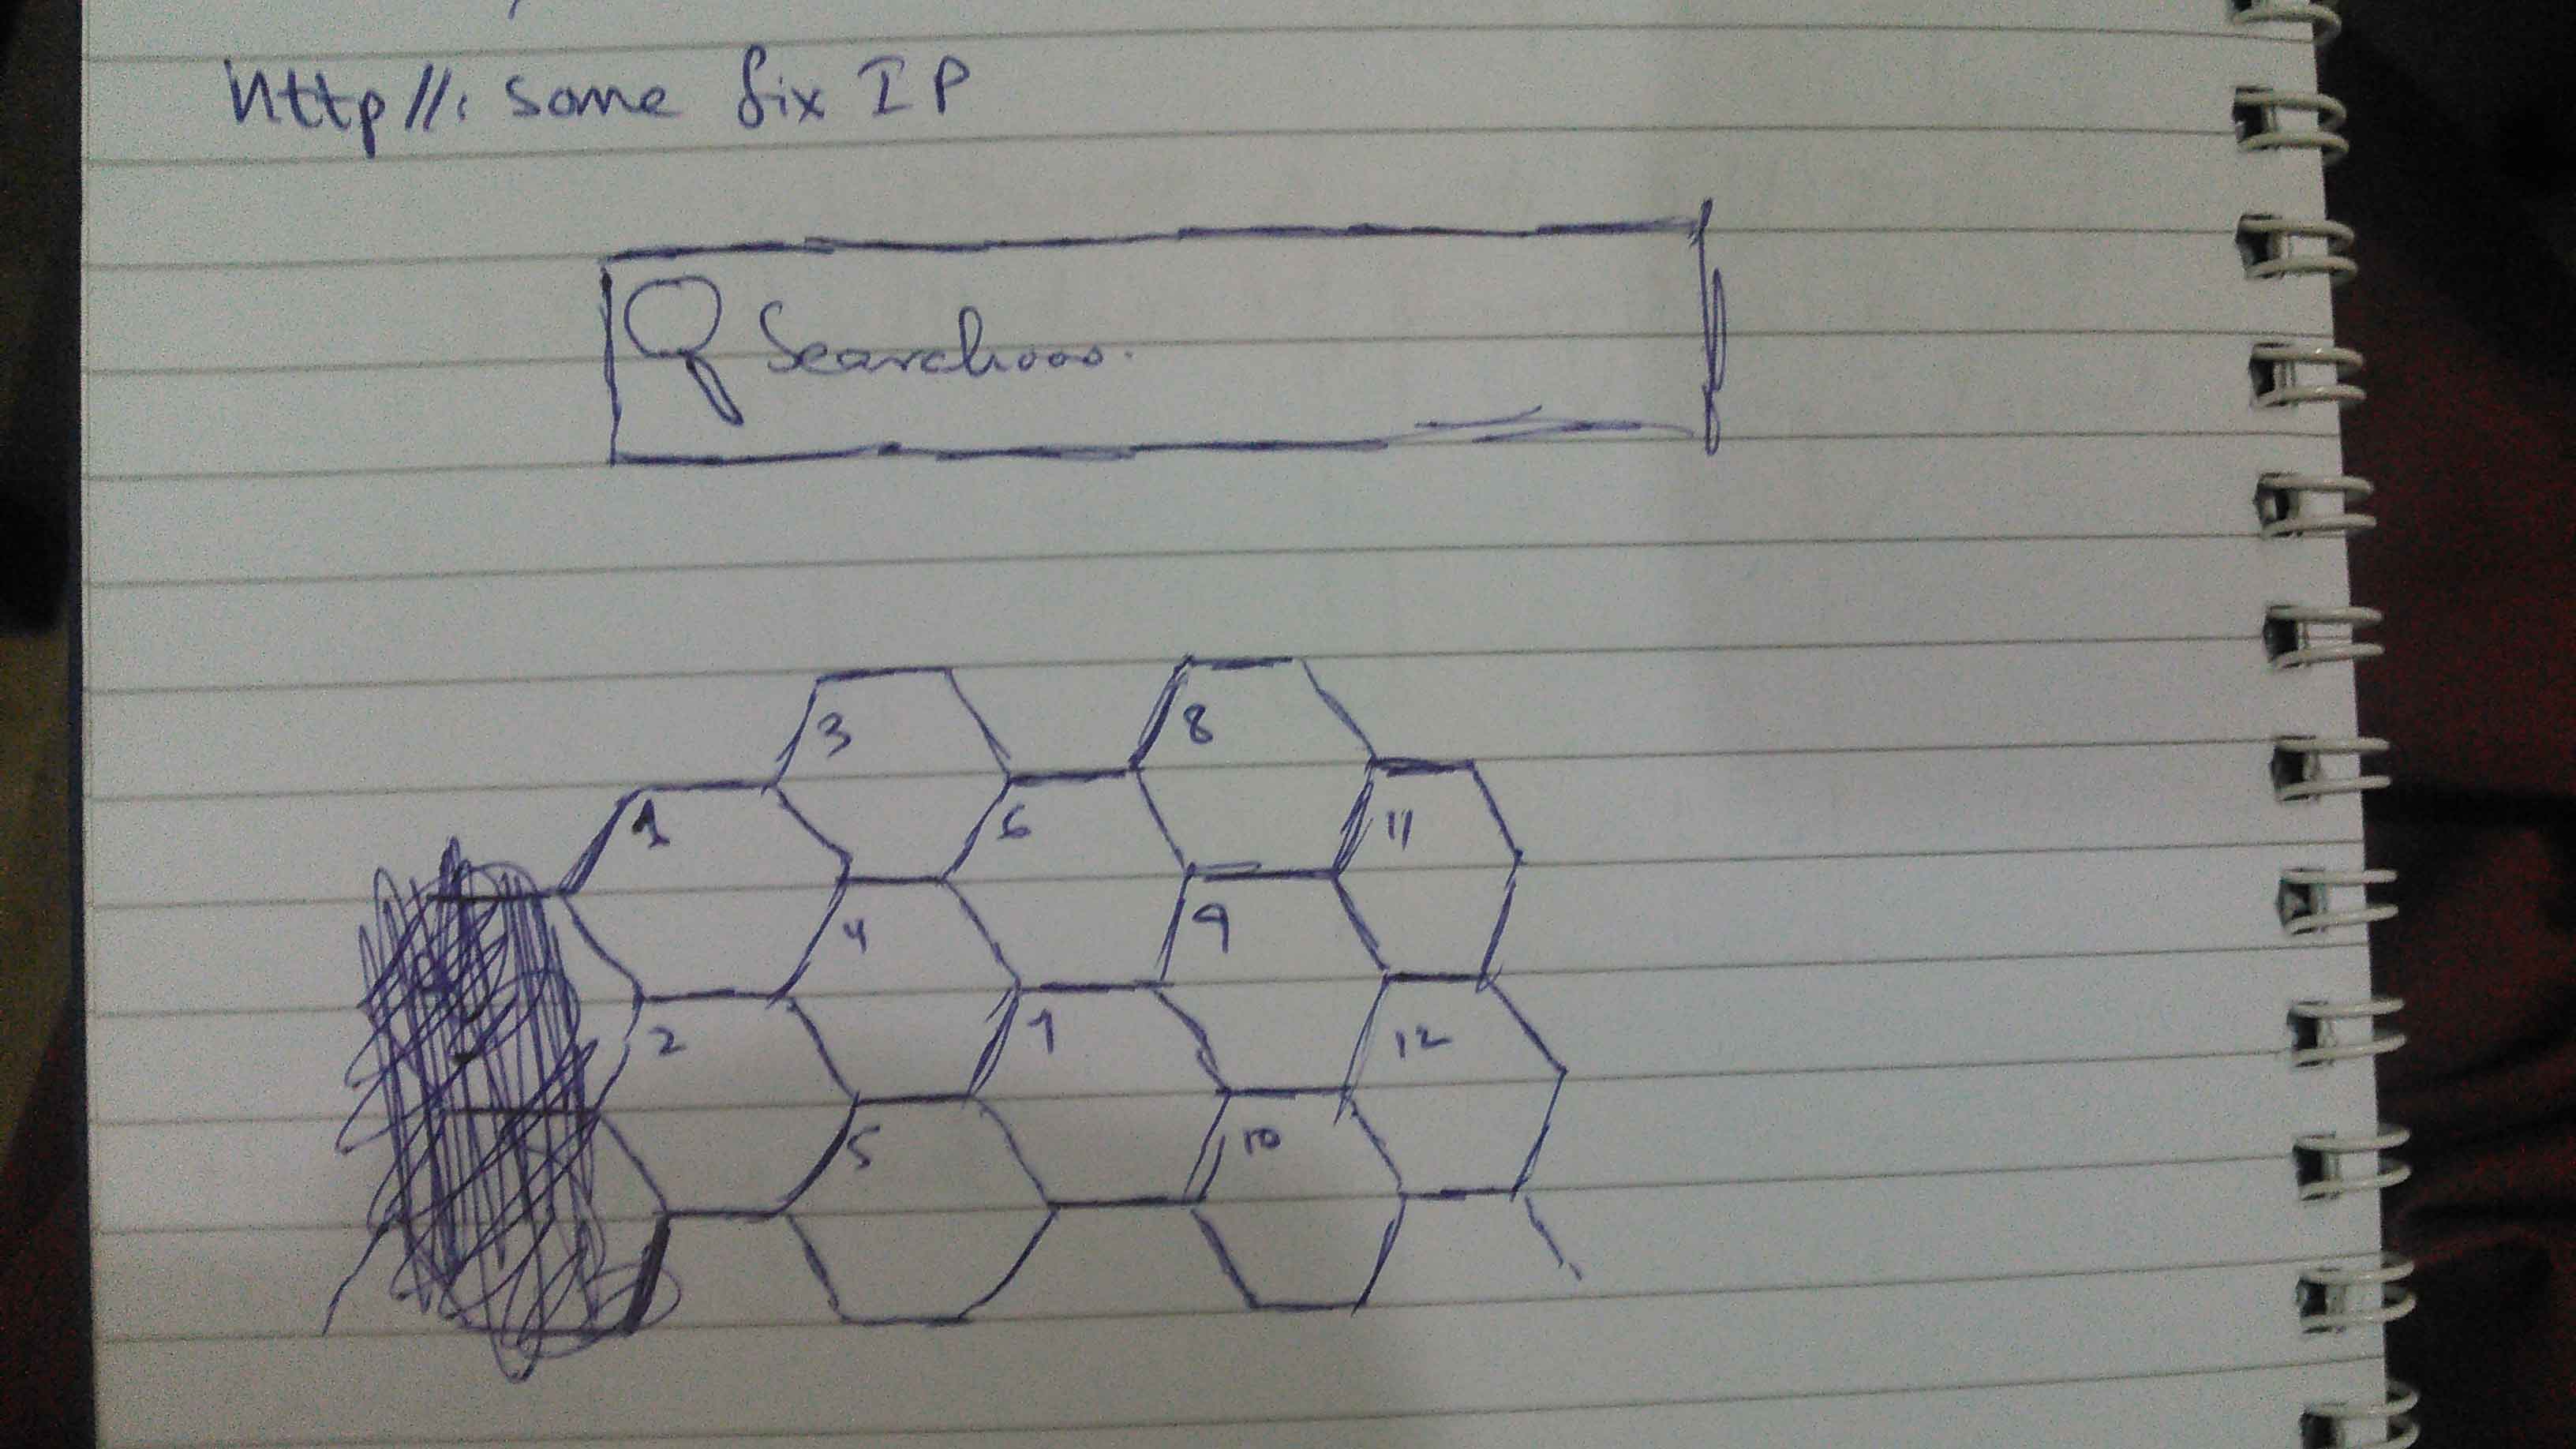 http//: some fix IP
Search....
3
8
1
6
11
4
9
2
7
12
5
10